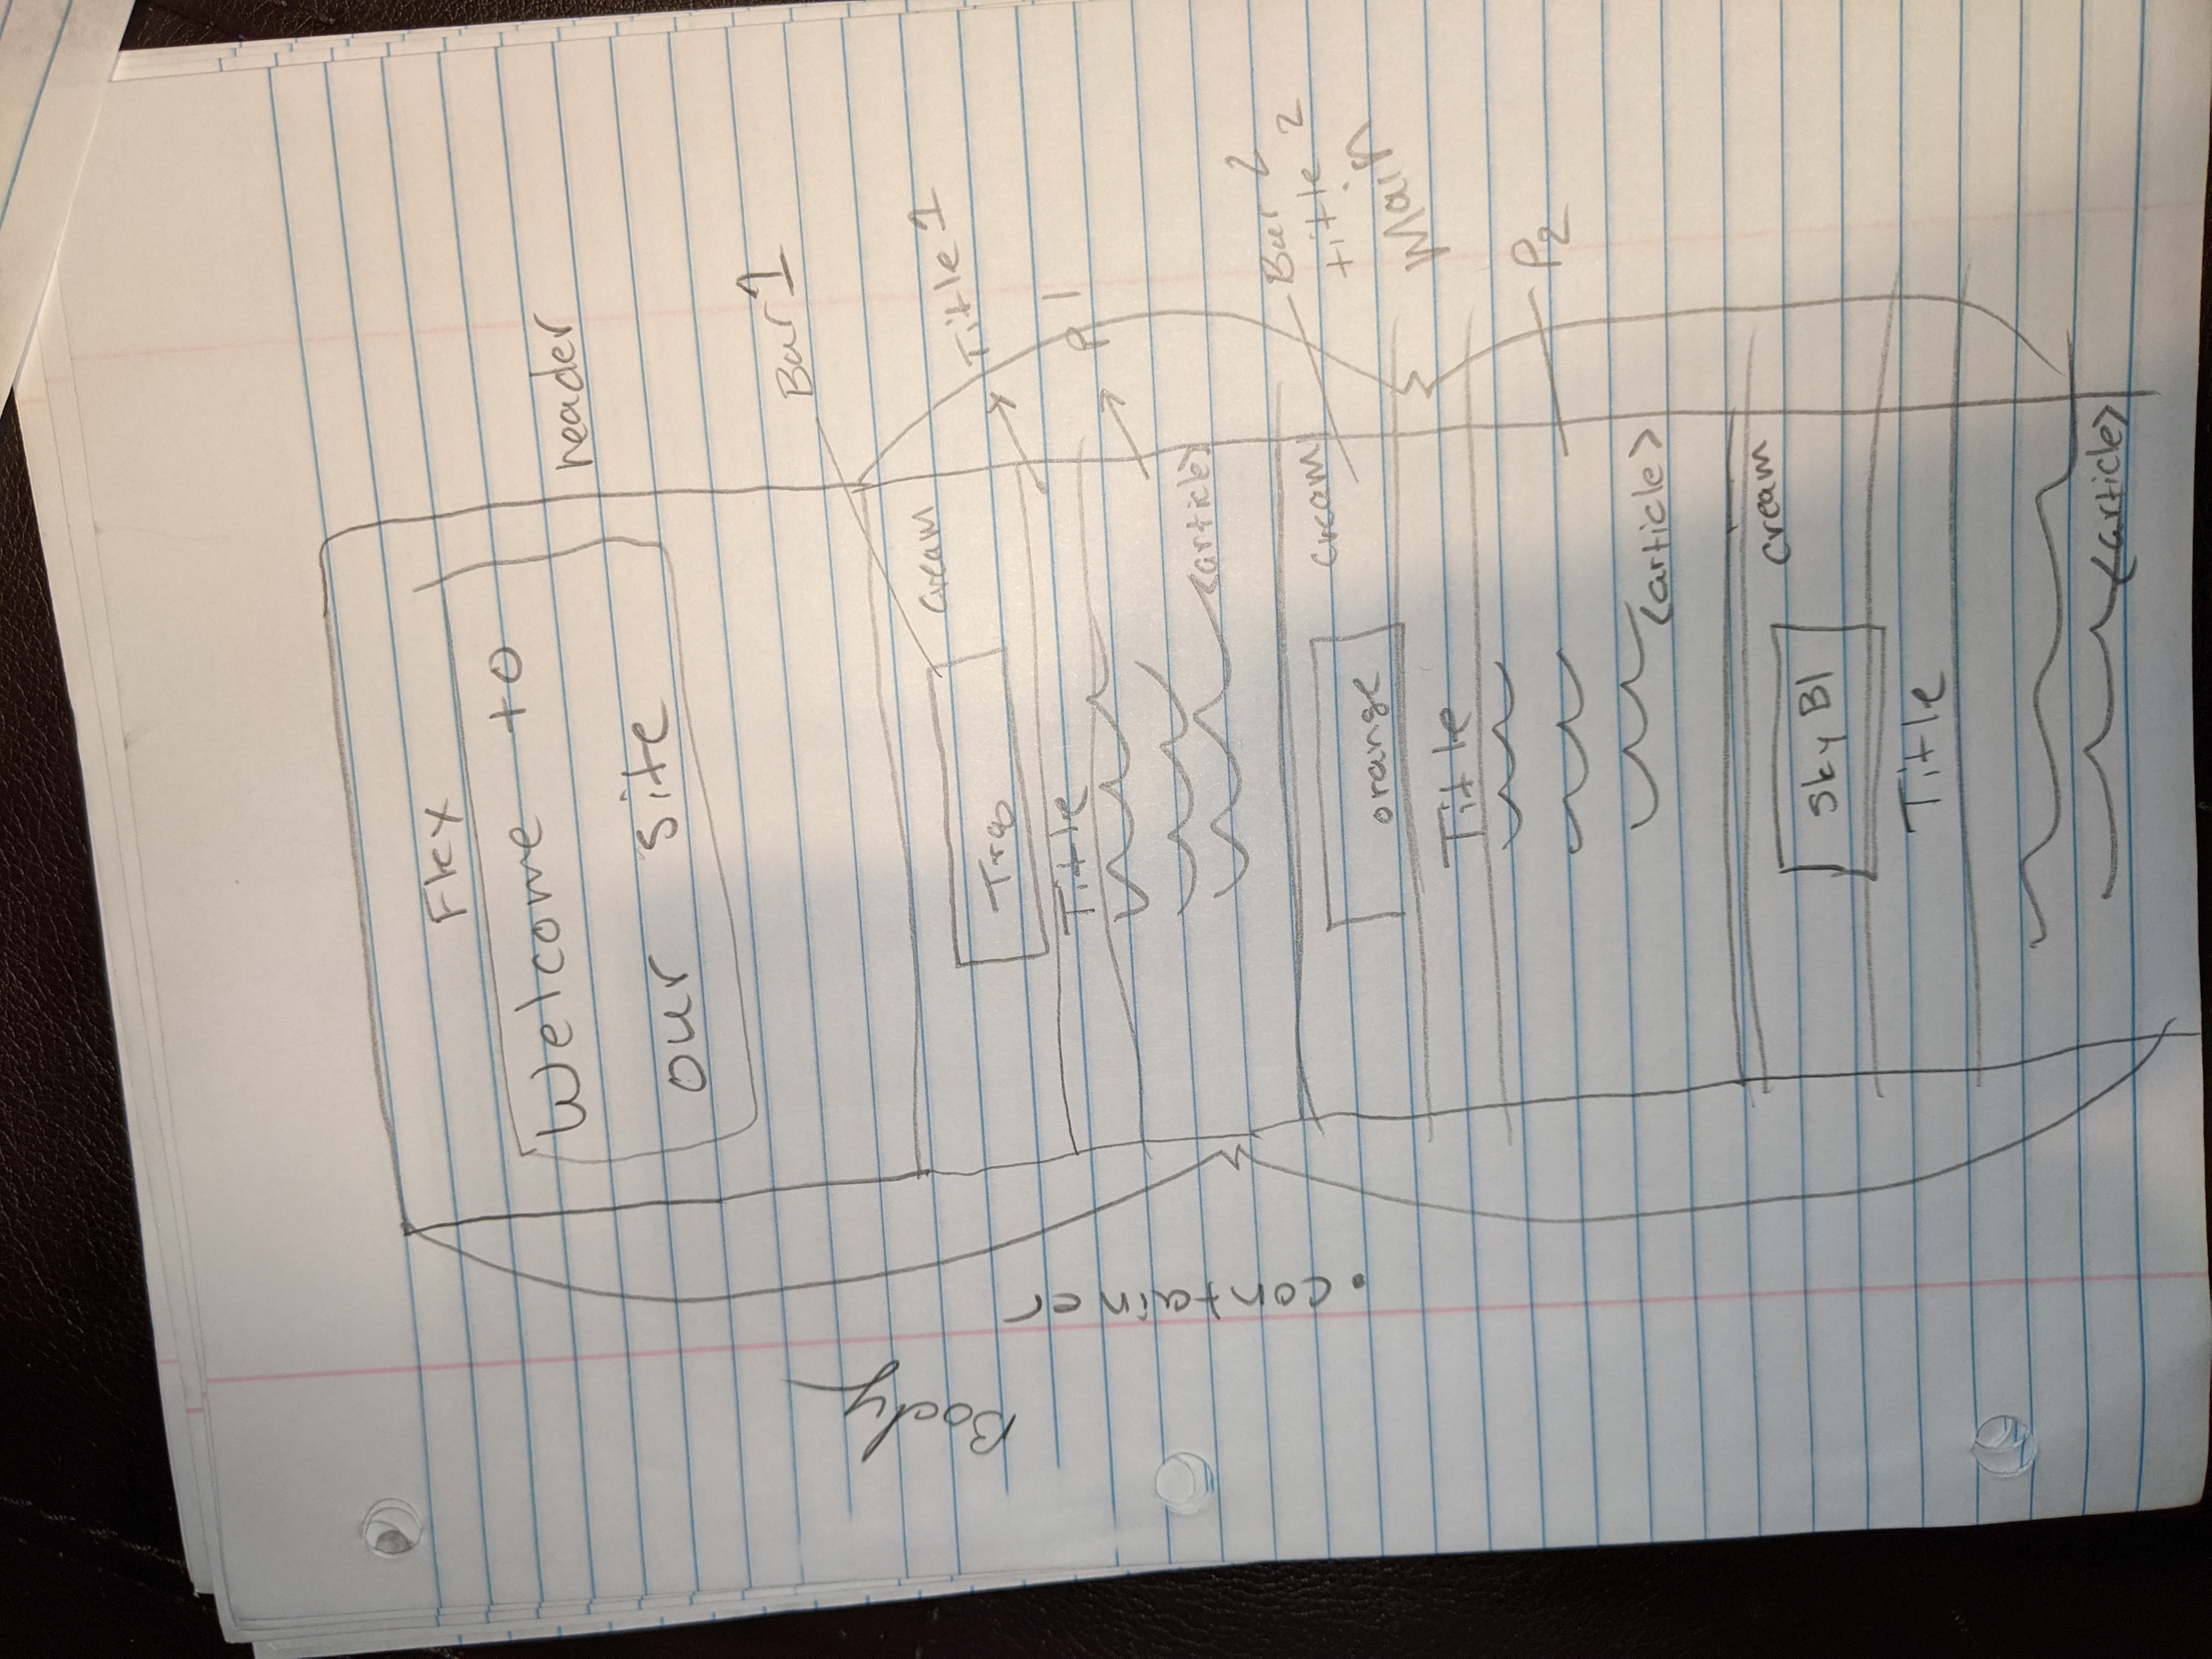 Body
.container
Flex
Welcome to
our site
header
Bar 1
cream
Title 1
Title
P 1
<article>
Bar 2
title 2
cream
orange
Main
Title
P2
<article>
cream
Sky Bl
Title
<article>